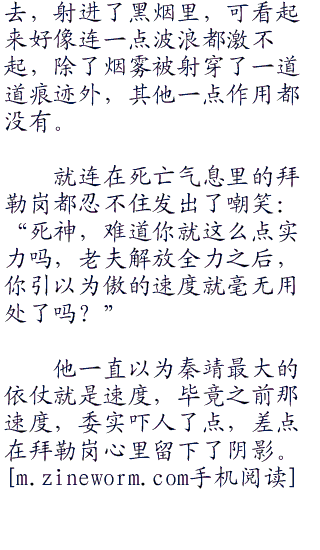 去，射进了黑烟里，可看起
来好像连一点波浪都激不
起，除了烟雾被射穿了一道
道痕迹外，其他一点作用都
没有。
就连在死亡气息里的拜
勒岗都忍不住发出了嘲笑：
“死神，难道你就这么点实
力吗，老夫解放全力之后，
你引以为傲的速度就毫无用
处了吗？”
他一直以为秦靖最大的
依仗就是速度，毕竟之前那
速度，委实吓人了点，差点
在拜勒岗心里留下了阴影。
[m.zineworm.com手机阅读]